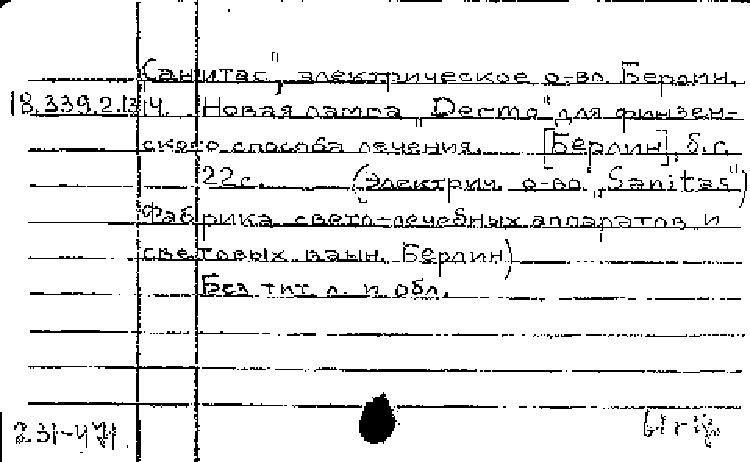 Санитас", электрическое о-во. Берлин.
18.339.2.134. Новая лампа „Dermo" для финзен-
ского способа лечения. [Берлин], б.г.
22с. (Электрич. о-во „Sanitas")
Фабрика свето-лечебных аппаратов и
световых ванн. Берлин)
Без тит. л. и обл.
231-471